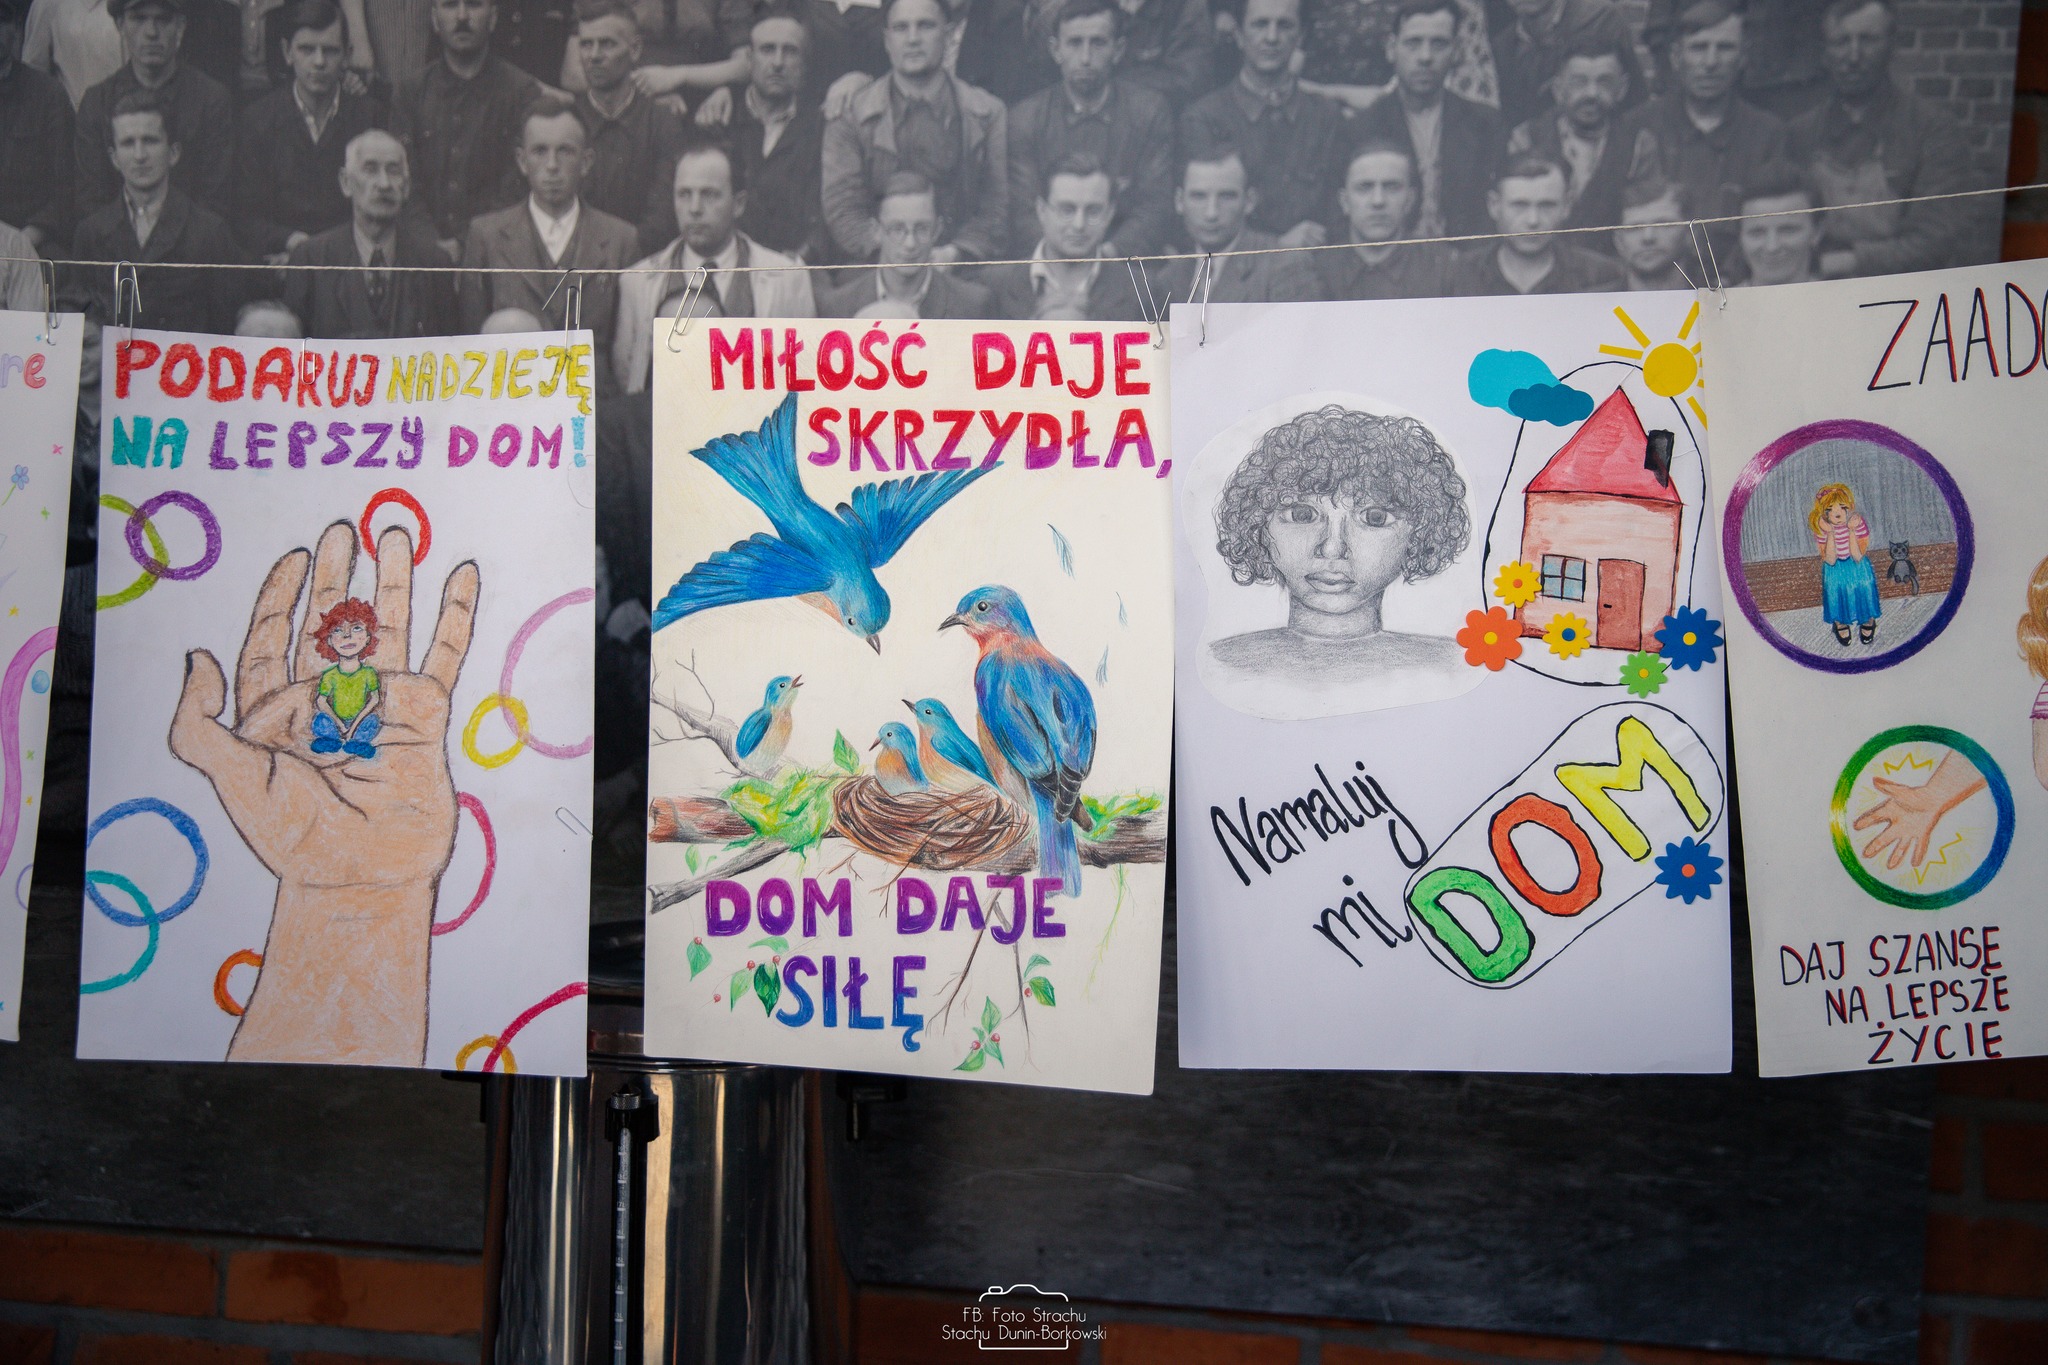 re
PODARUJ NADZIEJĘ
NA LEPSZY DOM!
MIŁOŚĆ DAJE
SKRZYDŁA,
DOM DAJE
SIŁĘ
Namaluj
mi DOM
ZAADO
DAJ SZANSĘ
NA LEPSZE
ŻYCIE
FB: Foto Strachu
Stachu Dunin-Borkowski